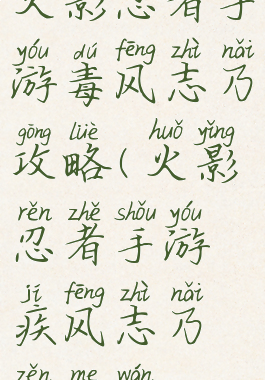 火影忍者手
yóu dú fēng zhì nǎi
游毒风志乃
gōng lüè huǒ yǐng
攻略(火影
rěn zhě shǒu yóu
忍者手游
jí fēng zhì nǎi
疾风志乃
zěn me wán